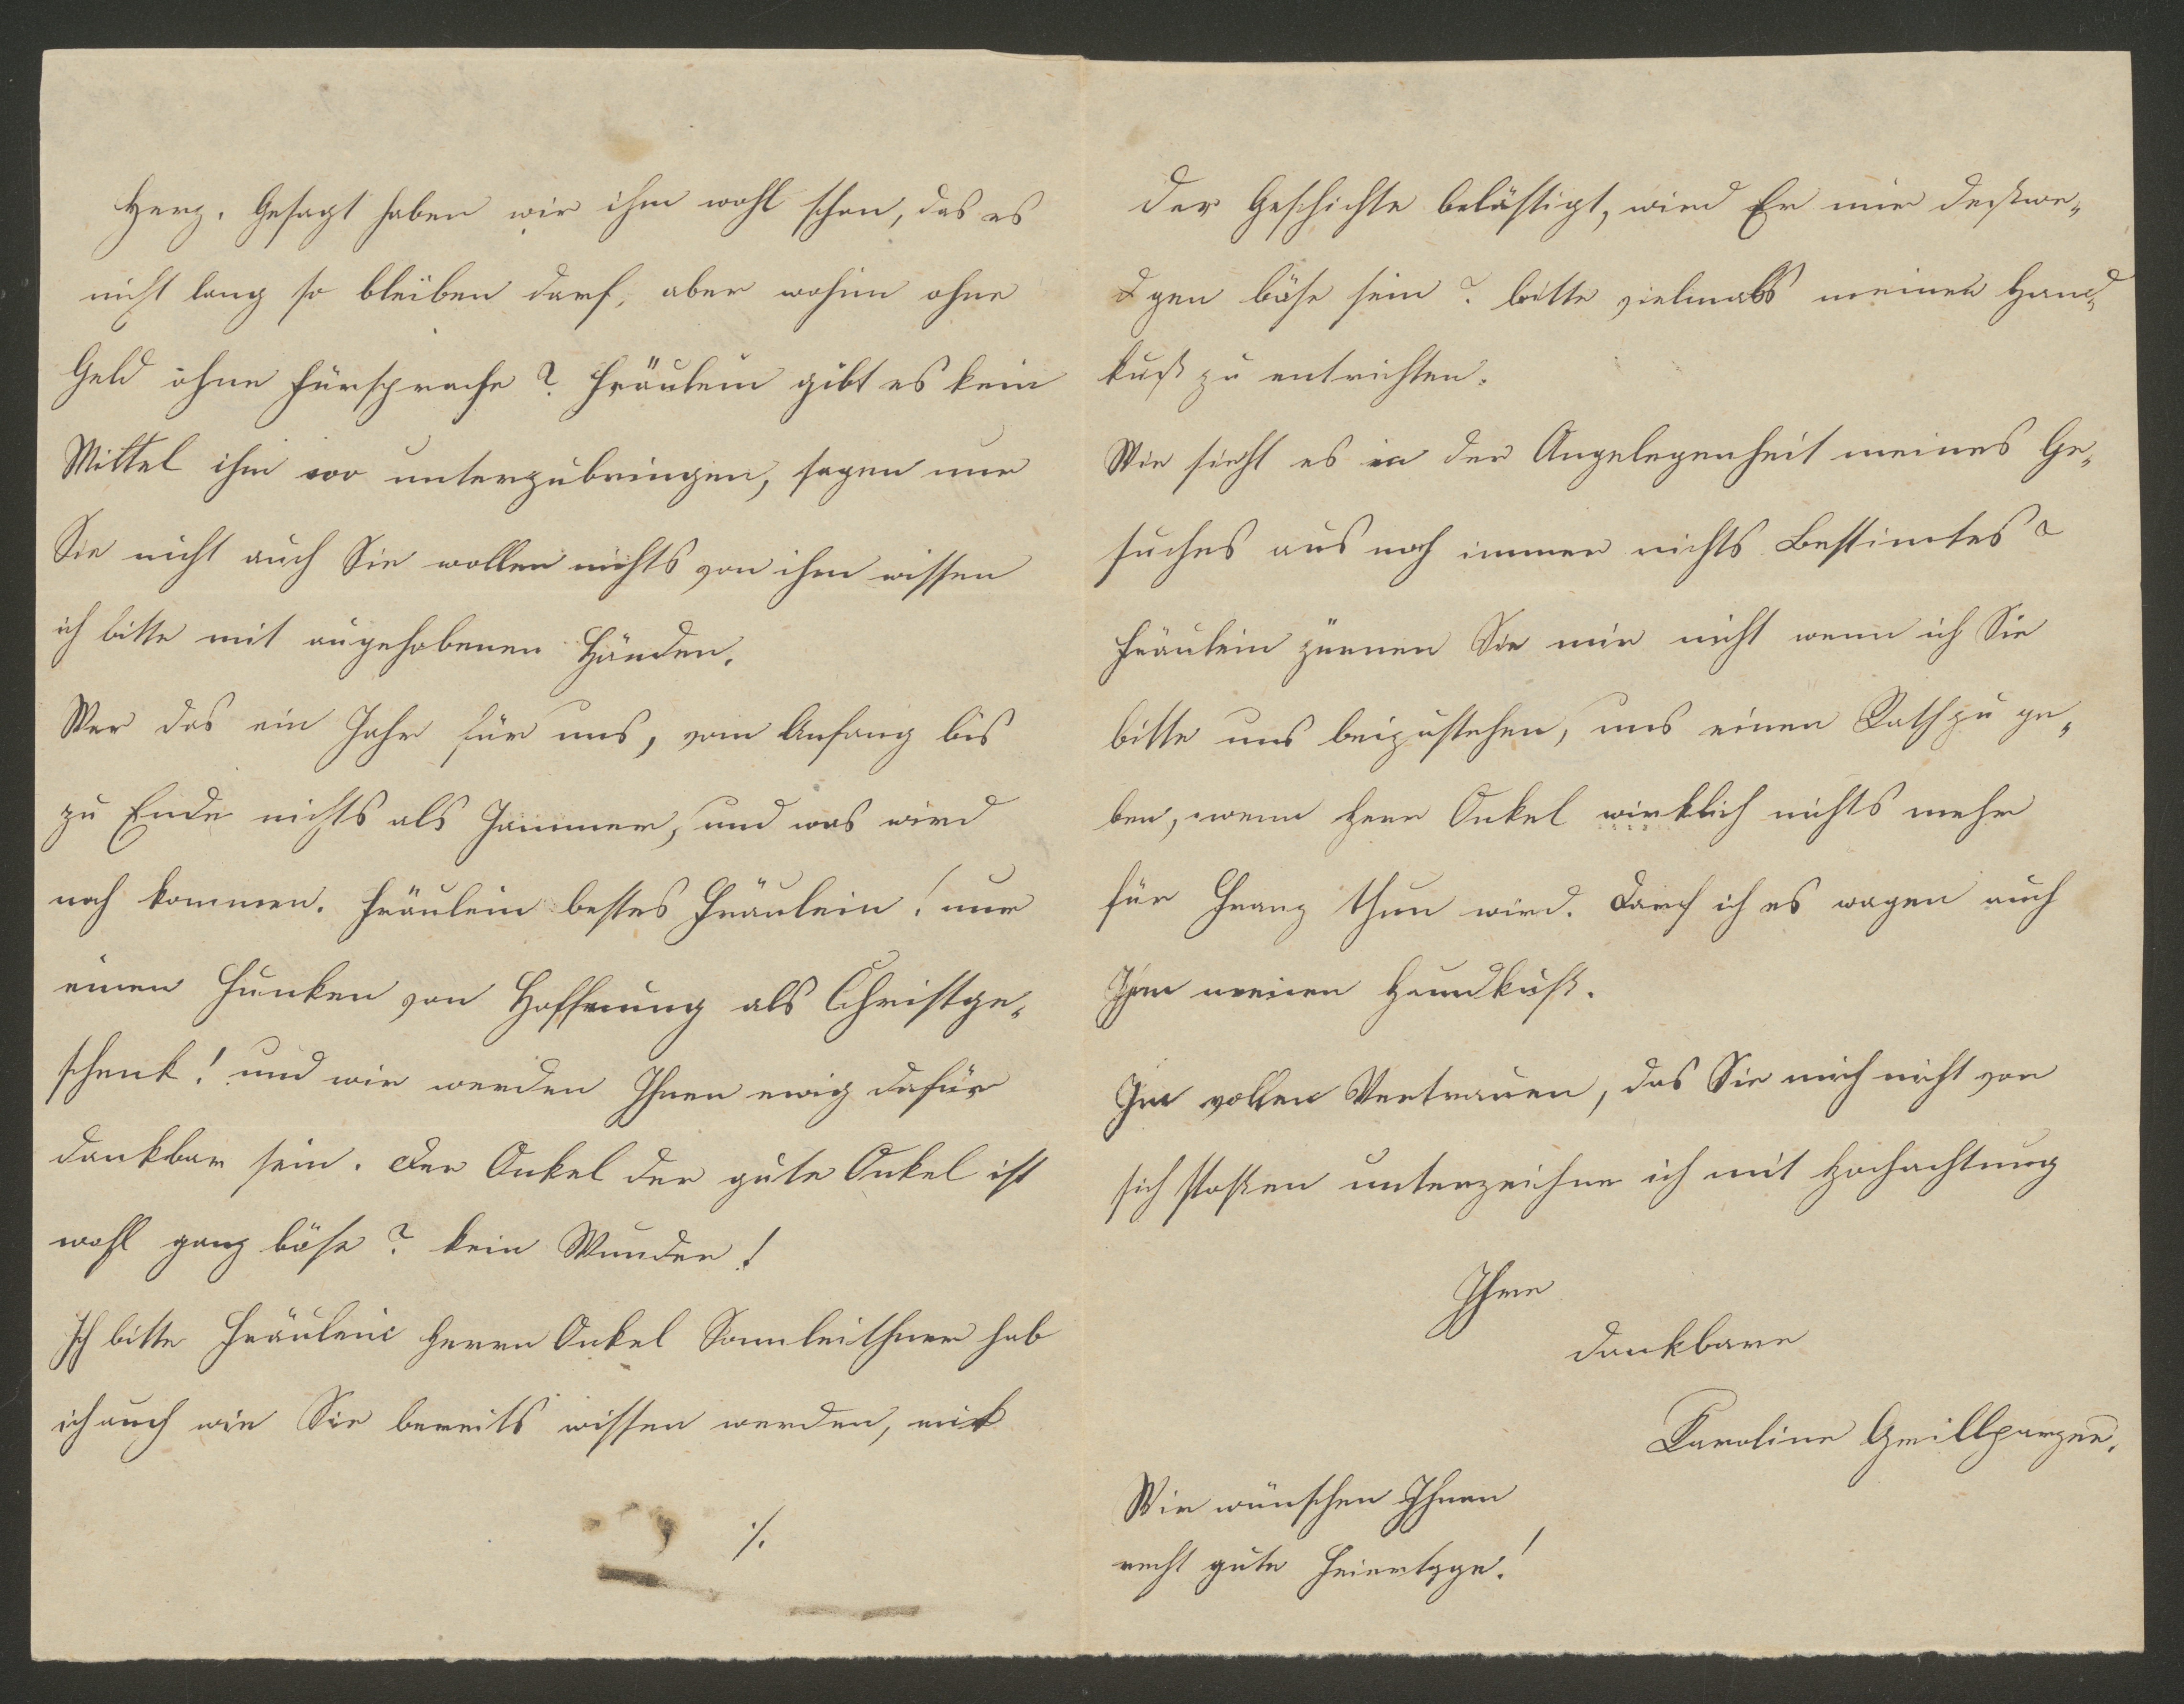 Herz. Gesagt haben wir ihm wohl schon, das es
nicht lang so bleiben darf, aber wohin ohne
Geld ohne Fürsprache? Fräulein gibt es kein
Mittel ihm wo unterzubringen, sagen nur
Sie nicht auch Sie wollen nichts von ihm wissen
ich bitte mit augehobenen Händen.
War das ein Jahr für uns, vom Anfang bis
zu Ende nichts als Jammer, und was wird
noch kommen. Fräulein bestes Fräulein! nur
einen Funken von Hoffnung als Christge„
schenk! und wir werden Ihnen ewig dafür
dankbar sein. Der Onkel der gute Onkel ist
wohl ganz böse? kein Wunder!
Ich bitte Fräulein Herrn Onkel Sonnleithner hab
ich auch wie Sie bereits wissen werden, mit
./.
der Geschichte belästigt, wird Er mir deßwe„
gen böse sein? bitte vielmals meinen Hand„
kuß zu entrichten.
Wie sieht es in der Angelegenheit meines Ge„
suches aus noch immer nichts Bestimtes?
Fräulein zürnen Sie mir nicht wenn ich Sie
bitte uns beizustehen, uns einen Rath zu ge„
ben, wenn Herr Onkel wirklich nichts mehr
für Franz thun wird. Darf ich es wagen auch
Ihm meinen Handkuß.
Im vollen Vertrauen, das Sie mich nicht von
sich stoßen unterzeichne ich mit Hochachtung
Ihre
dankbare
Karoline Grillparzer.
Wir wünschen Ihnen
recht gute Feiertage!